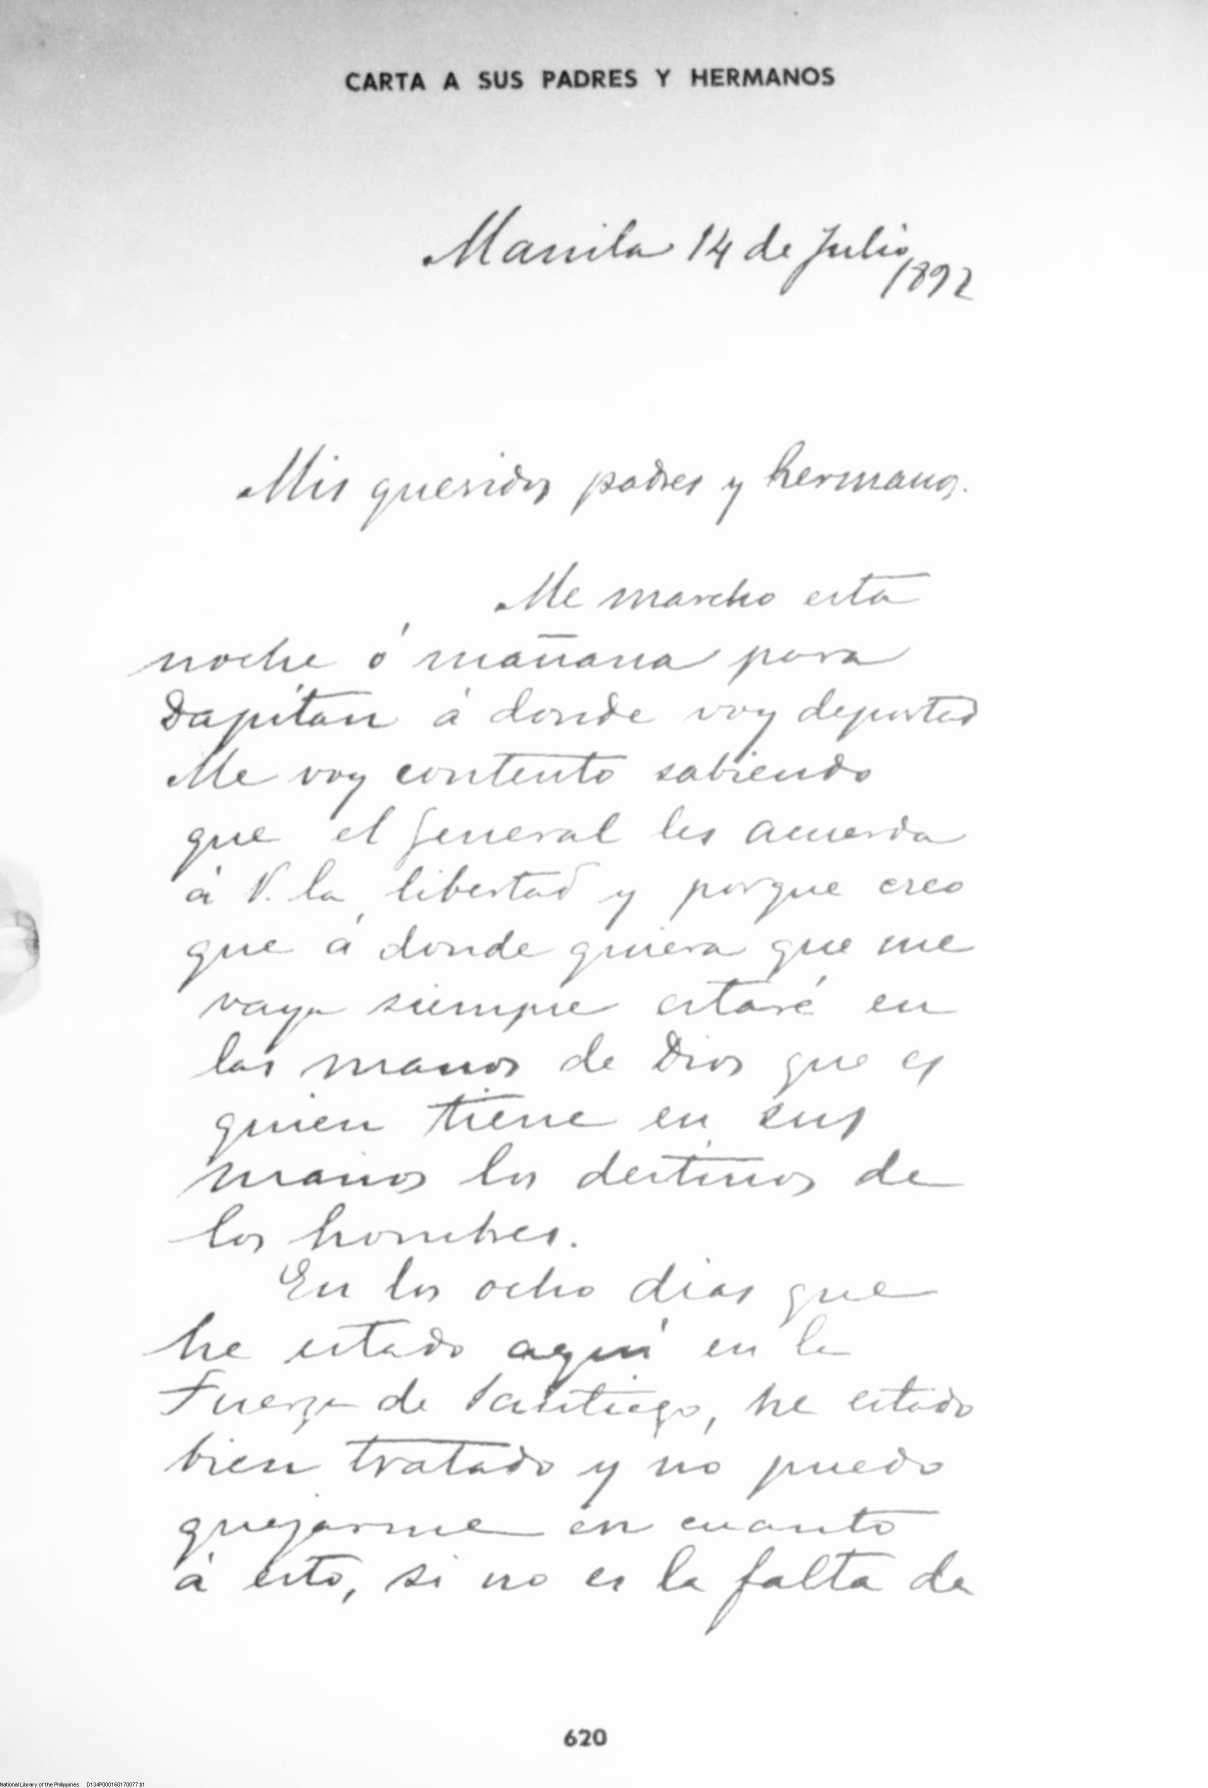 CARTA A SUS PADRES Y HERMANOS
Manila 14 de Julio
1892
Mis queridos padres y hermanos.
Me marcho esta
noche ó mañana para
Dapitan á donde voy deportado
Me voy contento sabiendo
que el General les acuerda
á V. la libertad y porque creo
que á donde quiera que me
vaya siempre estaré en
las manos de Dios que es
quien tiene en sus
manos los destinos de
los hombres.
En los ocho dias que
he estado aquí en la
Fuerza de Santiago, he estado
bien tratado y no puedo
quejarme en cuanto
á esto, si no es la falta de
620
National Library of the Philippines D134P000160170077.tif